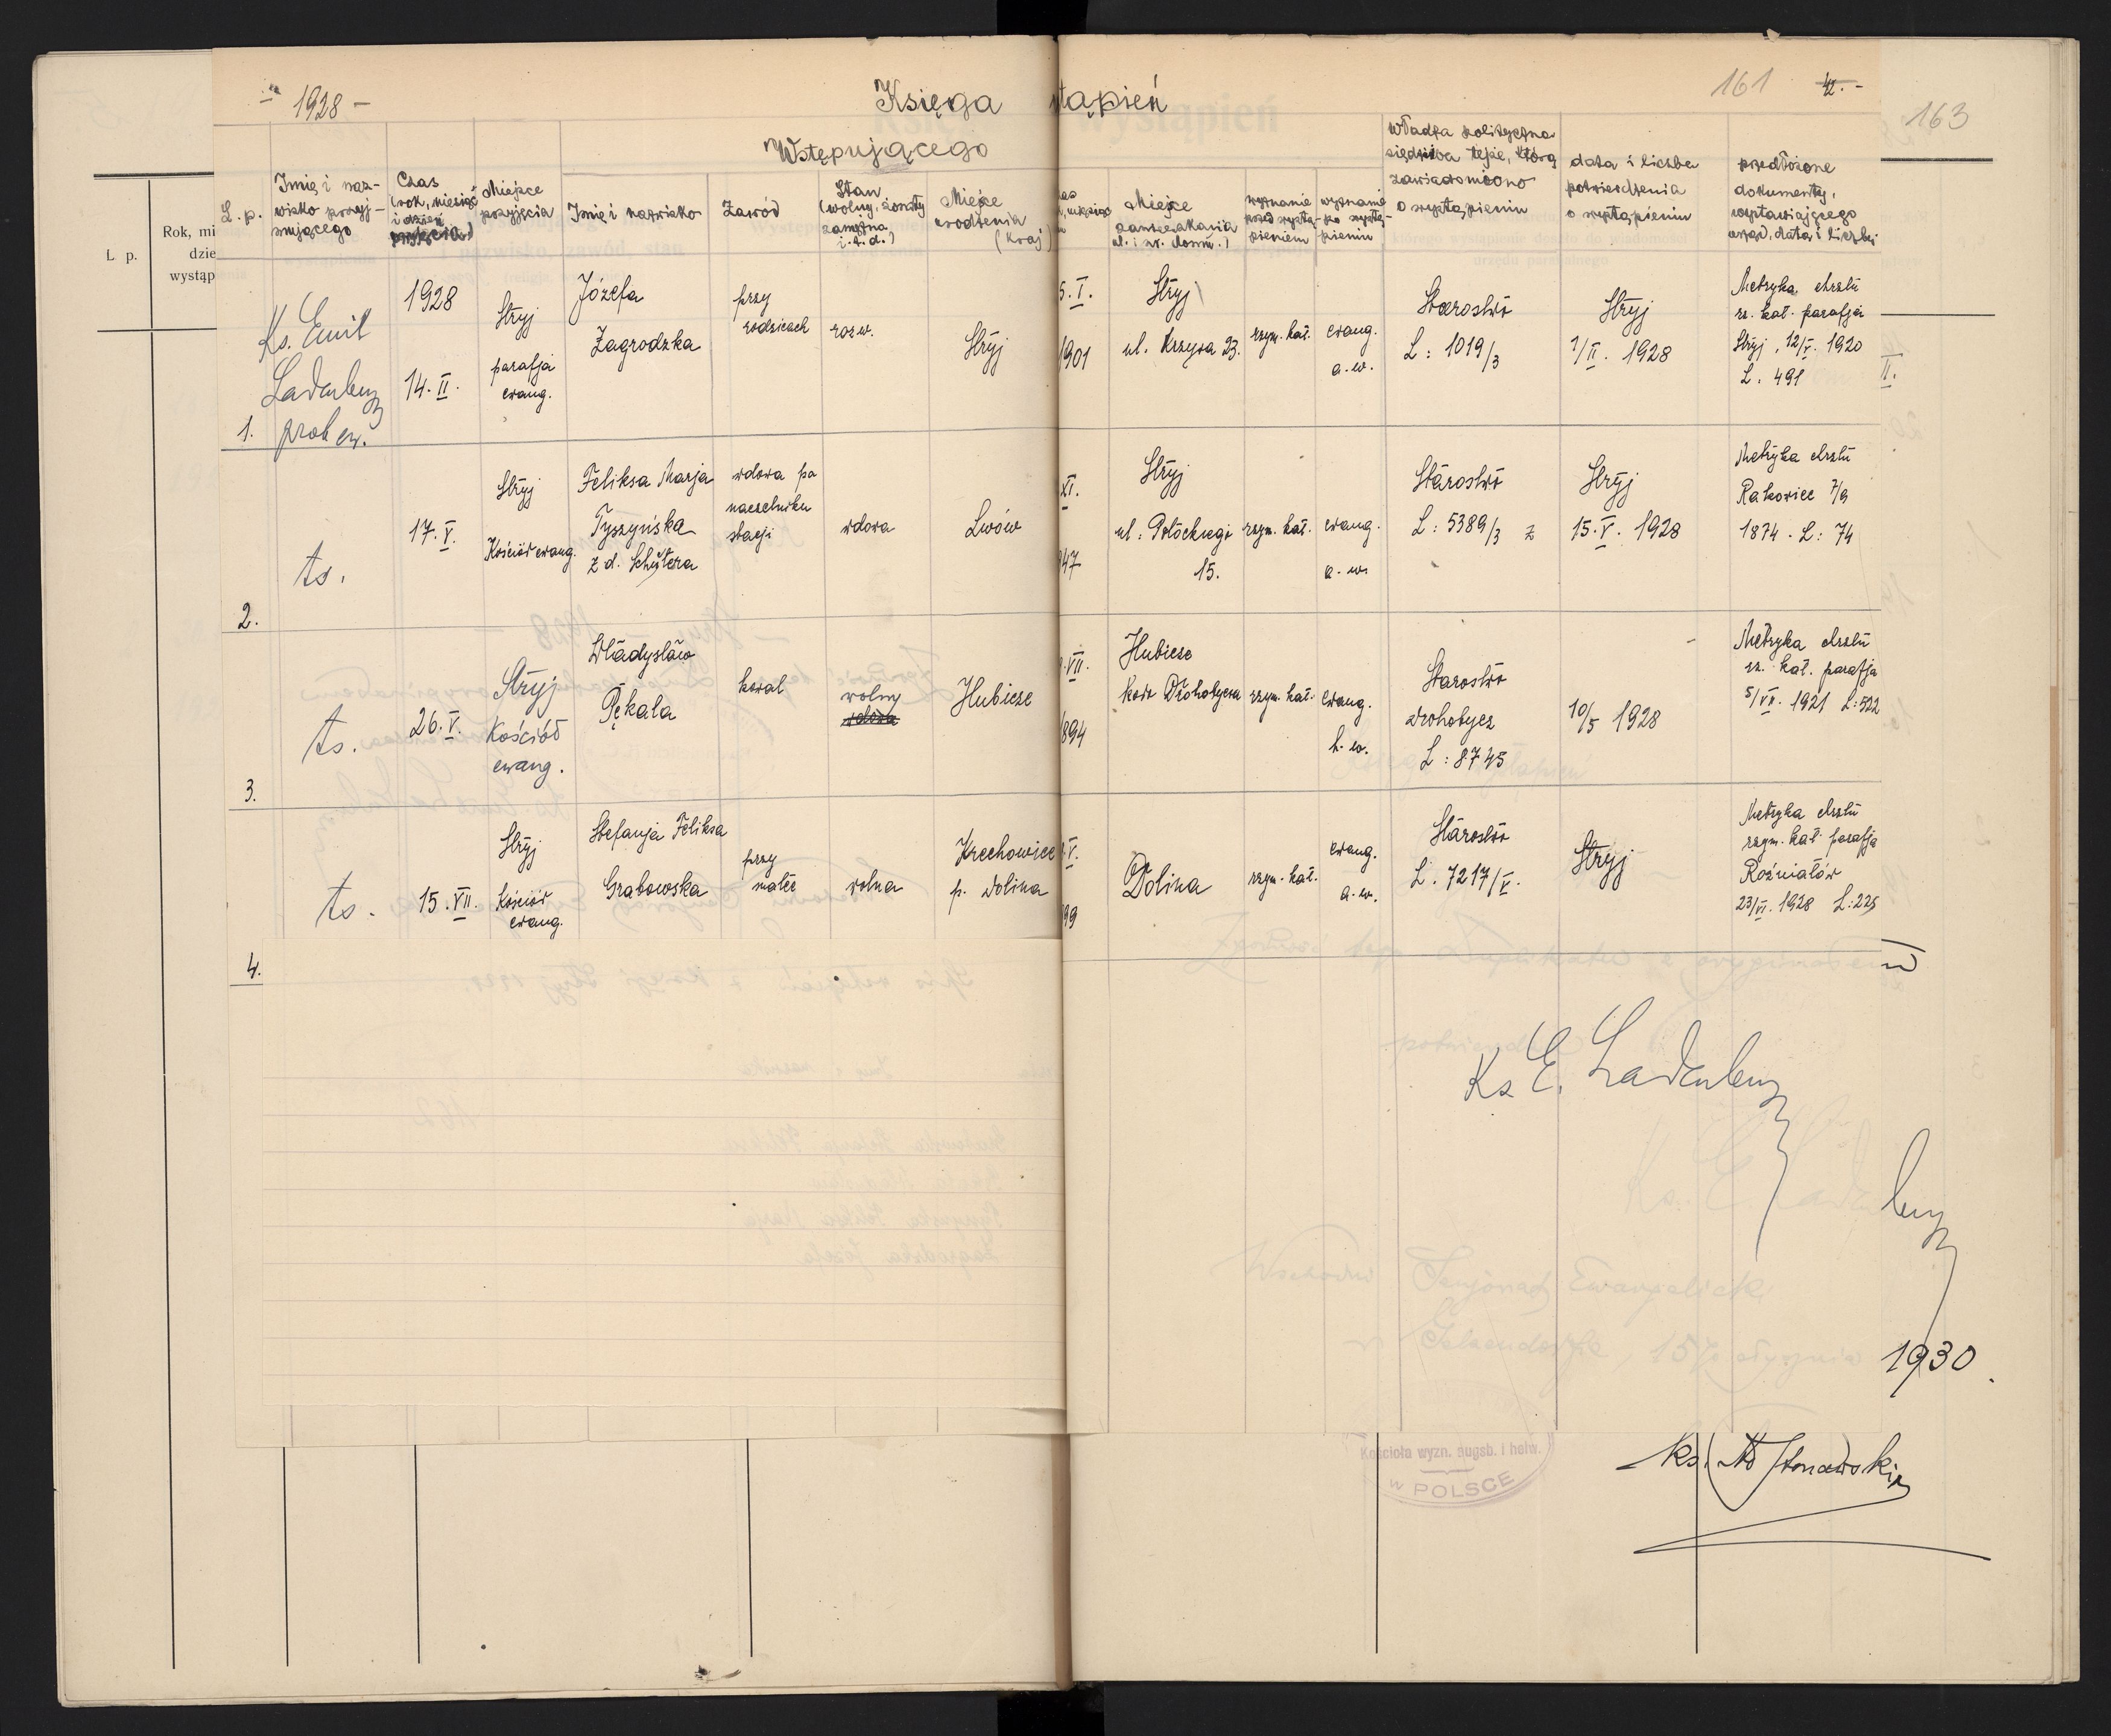 1928 –
Księga
tąpień
161
163
Wstępującego
L. p.
Imię i naz-
wisko przyj-
mującego
Czas
(rok, miesiąc
i dzień
Miejsce
przyjęcia
Imię i nazwisko
Zawód
Stan
(wolny, żonaty
zamężna
i. t. d.)
Miejsce
urodzenia
(kraj)
Miejsce
zamieszkania
ul. i nr. domu.)
wyznanie
przed wystą-
pieniem
wyznanie
po wystą-
pieniu
Władza polityczna
siedziba tejże, którą
zawiadomiono
o wystąpieniu
data i liczba
potwierdzenia
o wystąpieniu
przedłożone
dokumenty,
wystawiającego
urząd, data i liczba
L. p.
Rok, mi
dzie
wystąp
1.
Ks. Emil
Ladenberger
prob ew.
1928
14. II.
Stryj
parafja
ewang.
Józefa
Zagrodzka
przy
rodzicach
rozw.
Stryj
5. I.
1901
Stryj
ul. Krzywa 23.
rzym. kat.
ewang.
a. w.
Starostwo
L: 1019/3
Stryj
1/II. 1928
Metryka chrztu
rz. kat. parafja
Stryj, 12/V. 1920
L. 491
II.
2.
ts.
17. V.
Stryj
Kościół ewang.
Feliksa Marja
Tyszyńska
z d. Schütera
wdowa po
naczelniku
stacji
wdowa
Lwów
XI.
47
Stryj
ul: Potockiego
15.
rzym. kat.
ewang.
a. w.
Starostwo
L: 5389/3 z
Stryj
15. V. 1928
Metryka chrztu
Rakowiec 7/9
1874. L: 74
3.
ts.
26. V.
Stryj
Kościół
ewang.
Władysław
Pękala
kowal
wolny
Hubicze
VII.
894
Hubicze
koło Drohobycza
rzym. kat.
ewang.
h. w.
Starostwo
Drohobycz
L: 8745
10/5 1928
Metryka chrztu
rz. kat. parafja
5/VII. 1921 L: 522
4.
ts.
15. VII.
Stryj
Kościół
ewang.
Stefanja Feliksa
Grabowska
przy
matce
wolna
Krechowice
p. Dolina
V.
99
Dolina
rzym. kat.
ewang.
a. w.
Starostwo
L. 7217/V.
Stryj
Metryka chrztu
rzym. kat. parafja
Rożniatów
23/VI. 1928 L: 225
Ks E. Ladenberger
1930.
Kościoła wyzn. augsb. i helw.
w POLSCE